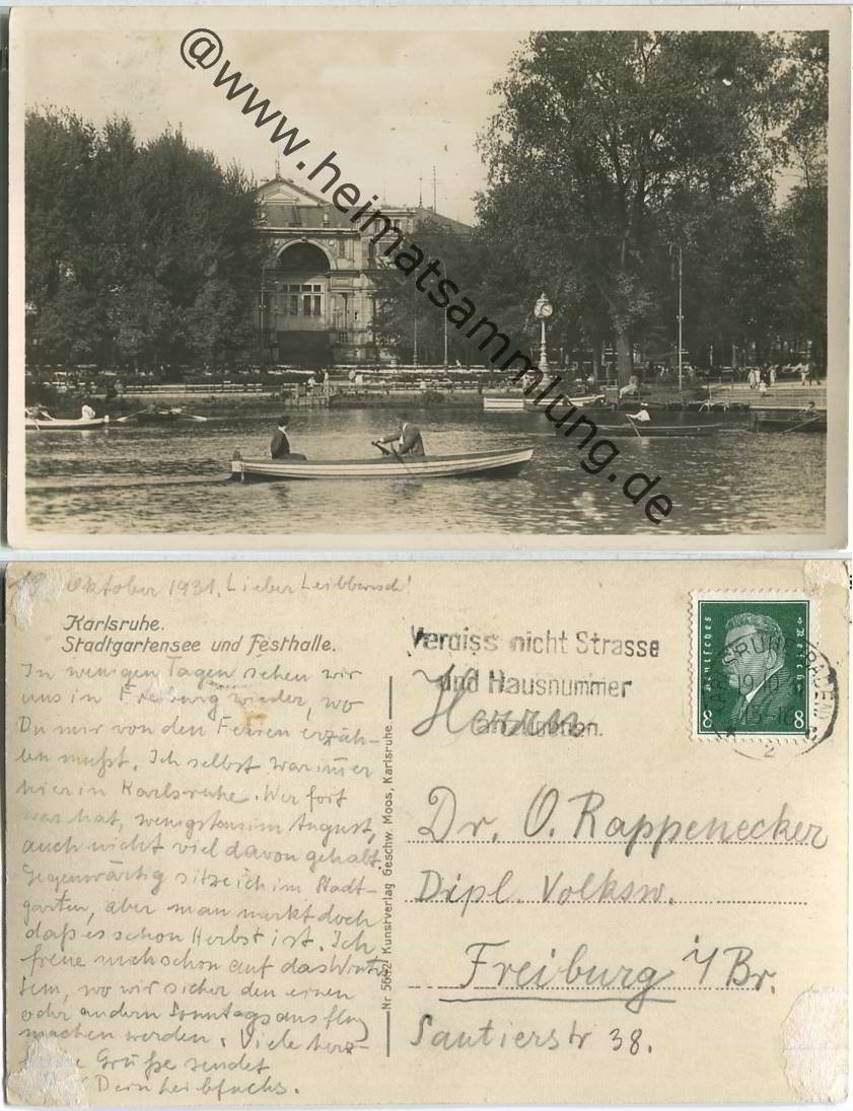 @www.heimatsammlung.de
Oktober 1931. Lieber Leibbursch!
Karlsruhe.
Stadtgartensee und Festhalle.
In wenigen Tagen sehen wir
uns in Freiburg wieder, wo
Du mir von den Ferien erzäh-
len mußt. Ich selbst war immer
hier in Karlsruhe. Wer fort
was hat, wenigstens im August,
auch nicht viel davon gehabt.
Gegenwärtig sitze ich im Stadt-
garten, aber man merkt doch
daß es schon Herbst ist. Ich
freue mich schon auf das Winter
sem, wo wir sicher den einen
oder andern Sonntagsausflug
machen werden. Viele herz-
Grüße sendet
Dein Leibfuchs.
Nr. 5692 Kunstverlag Geschw. Moos, Karlsruhe.
Vergiss nicht Strasse
und Hausnummer
anzugeben.
Deutsches Reich
8 8
KARLSRUHE (BADEN)
19.10
2
Herrn
Dr. O. Rappenecker
Dipl. Volksw.
Freiburg i/Br.
Sautierstr 38.